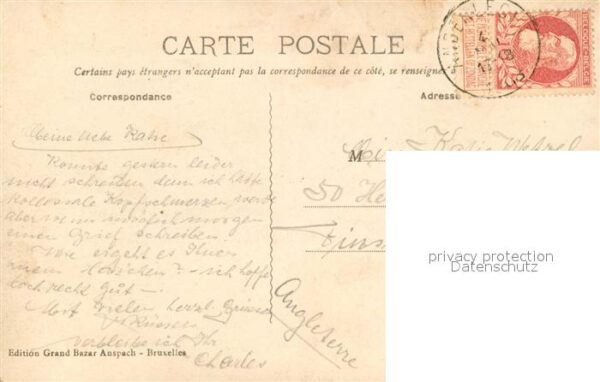 CARTE POSTALE
Certains pays étrangers n'acceptent pas la correspondance de ce côté, se renseigner
Correspondance
Adresse
Meine liebe Katie
Konnte gestern leider
nicht schreiben denn ich hatte
kollossale Kopfschmerzen werde
aber wenn möglich morgen
einen Brief schreiben.
Wie ergeht es Ihnen
mein Häschen? - ich hoffe
doch recht gut -
Mit vielen herzl. Grüssen
& Küssen
verbleibe ich Ihr
Charles
Edition Grand Bazar Anspach - Bruxelles
M Katie
50
Angleterre
privacy protection
Datenschutz